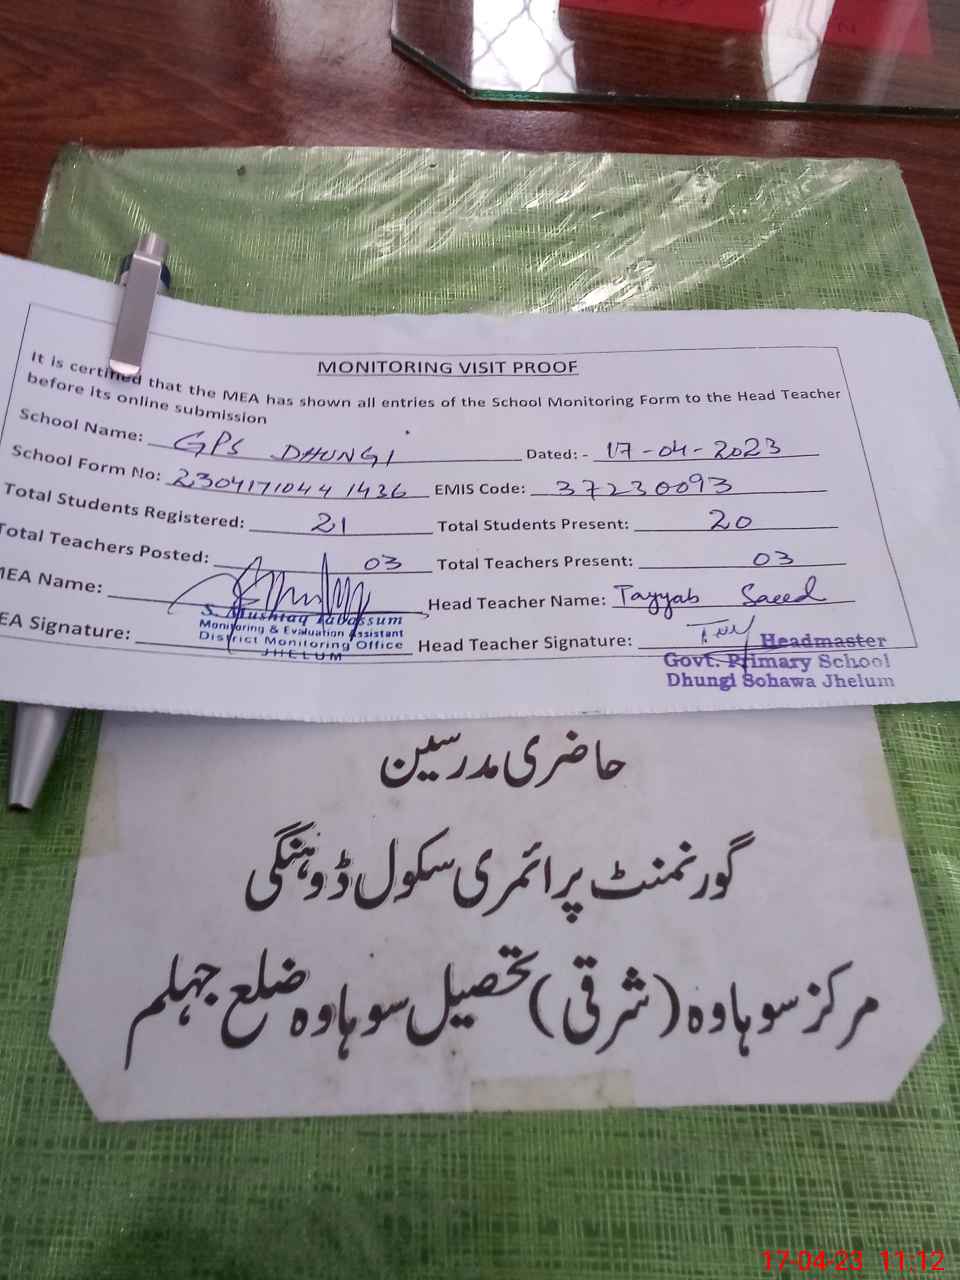 MONITORING VISIT PROOF
It is certified that the MEA has shown all entries of the School Monitoring Form to the Head Teacher
before its online submission
School Name: GPS DHUNGI Dated: - 17-04-2023
School Form No: 23041710441436 EMIS Code: 37230093
Total Students Registered: 21 Total Students Present: 20
Total Teachers Posted: 03 Total Teachers Present: 03
MEA Name: Head Teacher Name: Tayyab Saeed
S. Mushtaq Tabassum
Monitoring & Evaluation Assistant
District Monitoring Office
JHELUM
EA Signature: Head Teacher Signature:
Headmaster
Govt. Primary School
Dhungi Sohawa Jhelum
حاضری مدرسین
گورنمنٹ پرائمری سکول ڈوہنگی
مرکز سوہاوہ (شرقی) تحصیل سوہاوہ ضلع جہلم
17-04-23 11:12